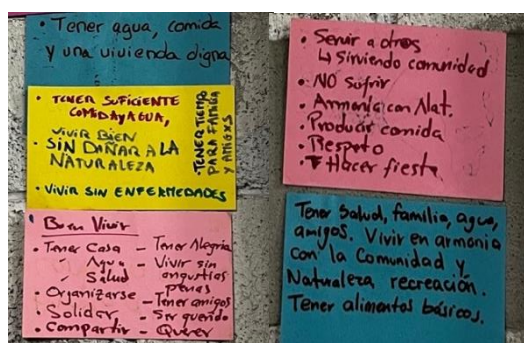 • Tener agua, comida
y una vivienda digna
• TENER SUFICIENTE
COMIDA Y AGUA,
VIVIR BIEN
SIN DAÑAR A LA
NATURALEZA
• VIVIR SIN ENFERMEDADES
TENER TIEMPO
PARA FAMILIA
Y AMIGXS
• Buen Vivir
• Tener Casa
" Agua
" Salud
• Organizarse
• Solidar
• Compartir
– Tener Alegria
– Vivir sin
angustias
penas
– Tener amigos
– Ser querido
– Querer
• Servir a otros
↳ Sirviendo comunidad
• NO Sufrir
• Armonía con Nat.
• Producir comida
• Respeto
• Hacer fiesta
Tener Salud, familia, agua,
amigos. Vivir en armonia
con la Comunidad y
Naturaleza recreación.
Tener alimentos básicos.